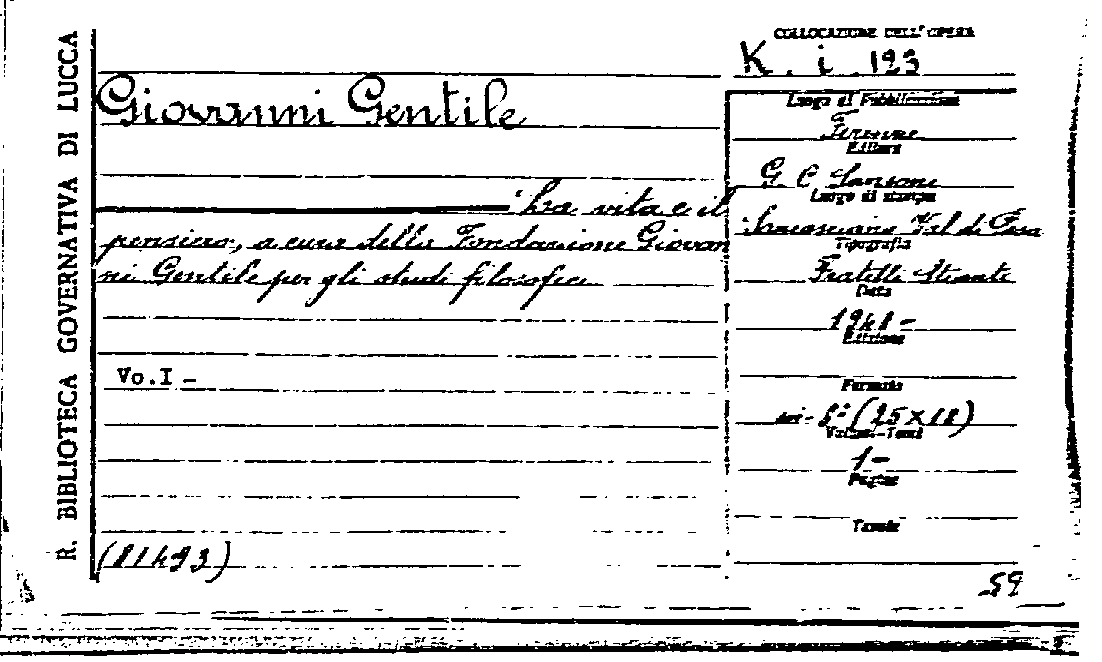 R. BIBLIOTECA GOVERNATIVA DI LUCCA
COLLOCAZIONE DELL'OPERA
K. i. 123
Giovanni Gentile
: La vita e il
pensiero, a cura della Fondazione Giovan
ni Gentile per gli studi filosofici
Vo.I -
(81493)
Luogo di Pubblicazione
Firenze
Editore
G. C. Sansoni
Luogo di stampa
Sancasciano Val di Pesa
Tipografia
Fratelli Stianti
Data
1948 -
Edizione
Formato
in- 8° (25 x 18)
Volumi-Tomi
1 -
Pagine
Tavole
59